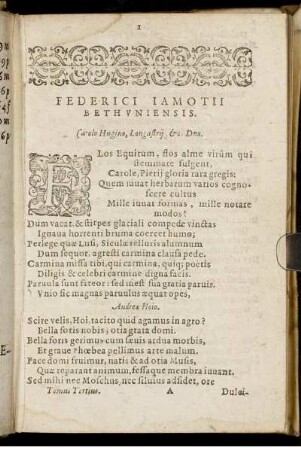 1
FEDERICI IAMOTII
BETHVNIENSIS.
Carolo Hugino, Longastrij, &c. Dno.
FLos Equitum, flos alme virûm qui
stemmate fulgent,
Carole, Pierij gloria rara gregis;
Quem iuuat herbarum varios cogno-
scere cultus
Mille iuuat formas, mille notare
modos!
Dum vacat, & stirpes glaciali compede vinctas
Ignaua horrenti bruma coercet humo;
Perlege quæ Lusi, Siculæ telluris alumnum
Dum sequor, agresti carmina clausa pede.
Carmina missa tibi, qui carmina, quiq; poëtis
Diligis & celebri carmine digna facis.
Paruula sunt fateor: sed inest sua gratia paruis.
Vnio sic magnas paruulus æquat opes,
Andreæ Hoio.
Scire velis, Hoi, tacito quid agamus in agro?
Bella foris nobis; otia grata domi.
Bella foris gerimus cum sæuis ardua morbis,
Et graue phœbea pellimus arte malum.
Pace domi fruimur, natis & ad otia Musis,
Quæ reparant animum, fessaque membra iuuant.
Sed mihi nec Moschus, nec siluius adsidet, ore
Tomus Tertius. A Dulci-